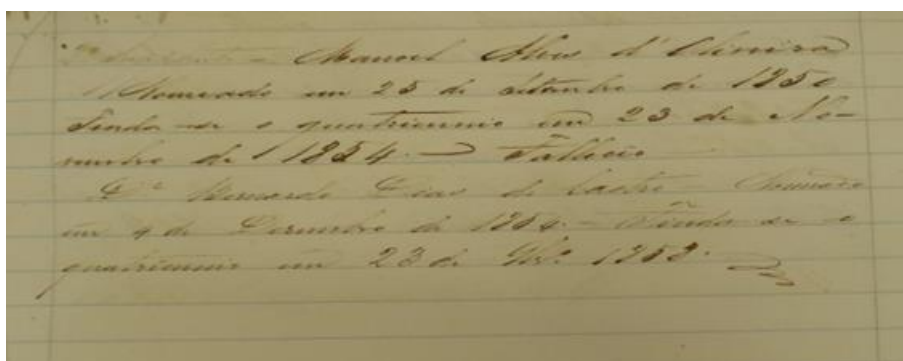 Manoel Alves d'Oliveira
Nomeado em 25 de Setembro de 1850
Finda-se o quatriennio em 23 de No-
vembro de 1854. Falleceo
Dr. Bernardo Dias de Castro - Nomeado
em 4 de Dezembro de 1854. - Finda-se o
quatriennio em 23 de 1858.